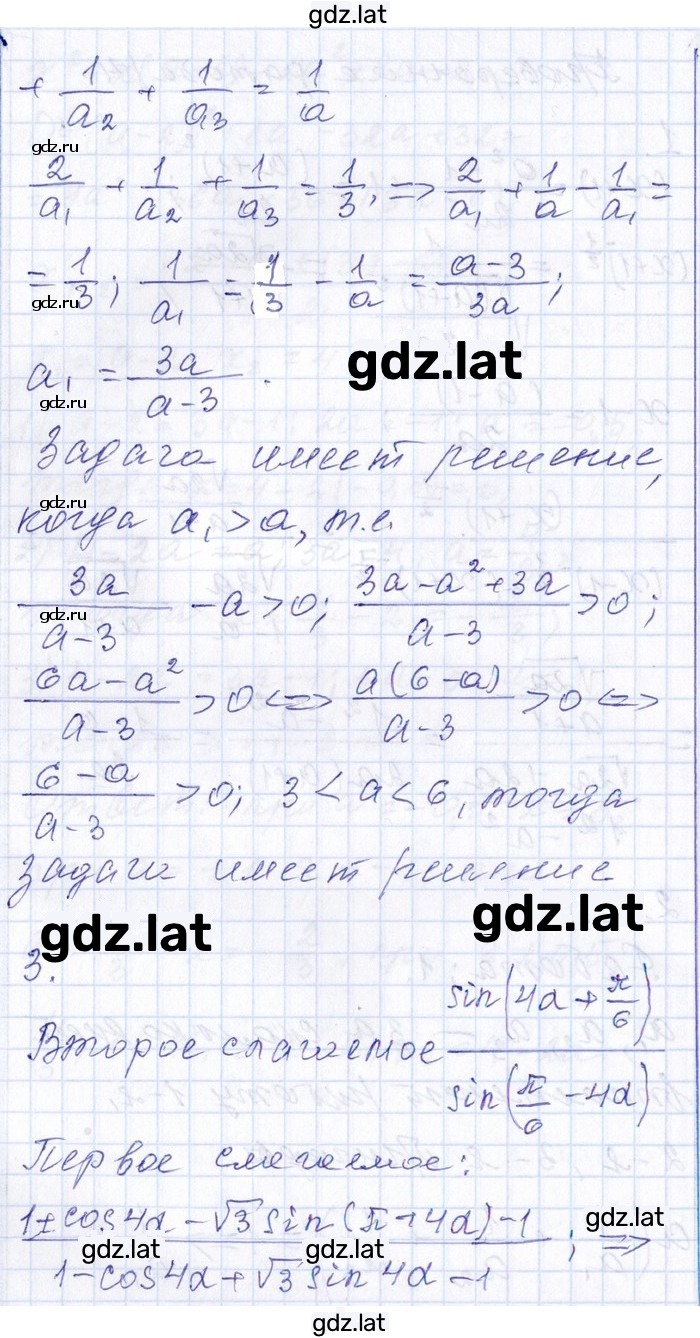 gdz.lat
+ 1/a₂ + 1/a₃ = 1/a
gdz.ru
2/a₁ + 1/a₂ + 1/a₃ = 1/3; => 2/a₁ + 1/a - 1/a₁ =
= 1/3; 1/a₁ = 1/3 - 1/a = (a-3)/3a;
gdz.ru
a₁ = 3a/(a-3).
gdz.lat
gdz.ru
Задача имеет решение,
когда a₁ > a, т.е.
gdz.ru
3a/(a-3) - a > 0; (3a-a²+3a)/(a-3) > 0;
gdz.ru
(6a-a²)/(a-3) > 0 <=> a(6-a)/(a-3) > 0 <=>
(6-a)/(a-3) > 0; 3 < a < 6, тогда
задача имеет решение
gdz.lat
gdz.lat
3.
Второе слагаемое sin(4α + π/6)/sin(π/6 - 4α)
Первое слагаемое:
(1+cos4α - √3 sin(π+4α) - 1)/(1-cos4α + √3 sin4α - 1); =>
gdz.lat
gdz.lat
gdz.lat
gdz.lat